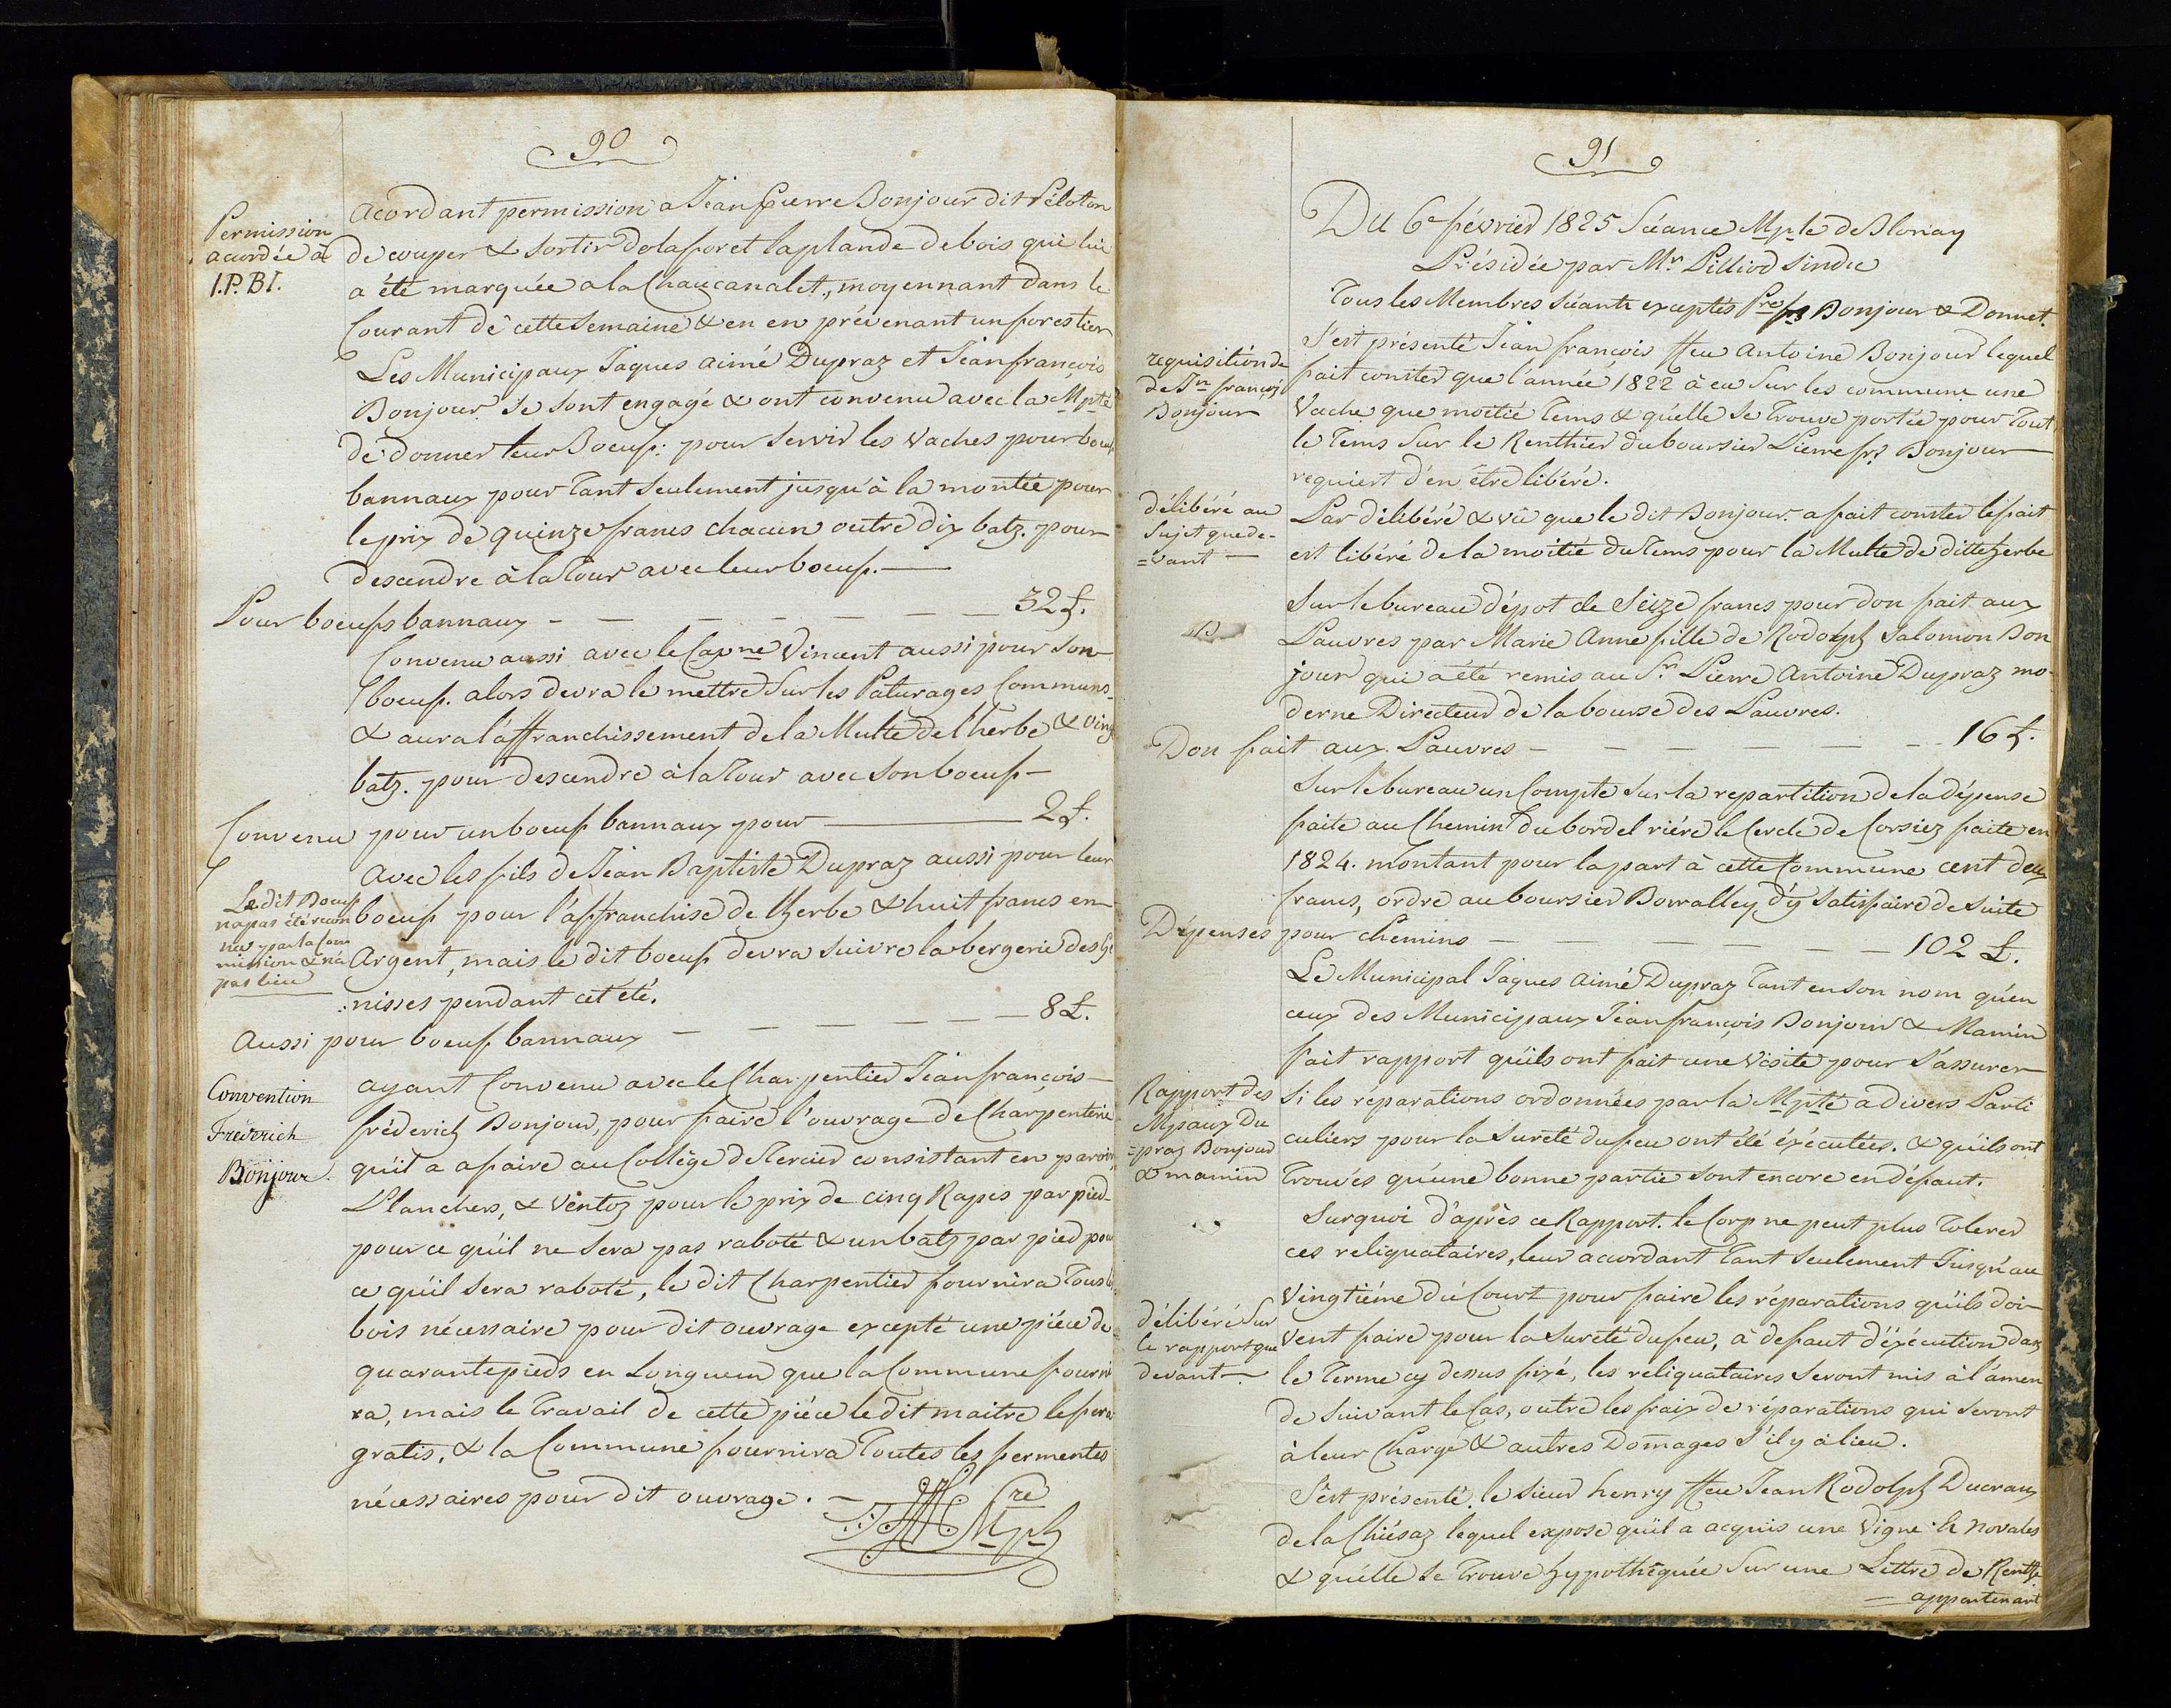 90
Permission
acordée à
J.P. BJ.
Acordant permission a Jean Pierre Bonjour dit Péloton
de couper & sortir de la foret la plande de bois qui lui
a été marquée a la Chaucanalet, moyennant dans le
Courant de cette semaine & en en prévenant un forestier
Les Municipaux Jaques aimé Dupraz et Jean françois
Bonjour se sont engagé & ont convenu avec la Mpté
de donner leur Boeuf: pour servir les vaches pour boeuf
bannaux pour tant seulement jusqu'à la montée pour
le prix de quinze francs chacun outre dix batz. pour
descendre à la Tour avec leur boeuf.
Pour boeufs bannaux - - - - - - - 32 £.
Convenu aussi avec le Capne Vincent aussi pour son
boeuf. alors devra le mettre sur les Paturages Communs
& aura l'affranchissement de la Multe de l'herbe & ving
batz. pour descendre à la Tour avec son boeuf -
Convenu pour un boeuf bannaux pour — 2 £.
Avec les fils de Jean Baptiste Dupraz aussi pour leur
Le dit Boeuf
na pas été recon
nu par la Com
mission & n'a
pas lieu
boeuf pour l'affranchise de lherbe & huit francs en
Argent, mais le dit boeuf devra suivre la bergerie des Gé
:nisses pendant cet été.
Aussi pour boeuf bannaux - - - - - - 8 £.
Convention
Fréderich
Bonjour.
ayant Convenu avec le Charpentier Jean françois
fréderich Bonjour, pour faire l'ouvrage de Charpenterie
qu'il a a faire au Collège de Tercier consistant en parois,
Planchers, & Ventoz pour le prix de cinq Rapes par pied
pour ce qu'il ne sera pas raboté & un batz par pied pour
ce qu'il sera raboté, le dit Charpentier fournira tous le
bois nécessaire pour dit ouvrage excepté une piéce de
quarante pieds en Longueur que la Commune fourni
ra, mais le Travail de cette piéce le dit maitre le fera
gratis, & la Commune fournira Toutes les fermentes
nécessaires pour dit ouvrage. —
Cre
Mpl
91
Du 6e février 1825 Séance Mple de Blonay
Présidée par Mr Pilliod Sindic
Tous les Membres séants exceptés Pre fs Bonjour & Donnet.
requisition de
de Jn françs
Bonjour
S'est présenté Jean françois ffeu Antoine Bonjour lequel
fait conster que l'année 1822 à eu sur les commune une
Vache que moetié Tems & qu'elle se trouve portée pour Tout
le Tems sur le Renthier du boursier Pierre frs Bonjour
requiert d'en être libéré.
délibéré au
sujet que de-
=vant —
Par délibéré & vû que le dit Bonjour a fait conster le fait
est libéré de la moitié du Tems pour la Multe de ditte herbe
Sur le bureau dépot de Seize francs pour don fait aux
Pauvres par Marie Anne fille de Rodolph Salomon Bon
jour qui a été remis au Sr Pierre Antoine Dupraz mo-
derne Directeur de la bourse des Pauvres.
Don fait aux Pauvres - - - - - - - 16 £.
Sur le bureau un Compte sur la repartition de la dépense
faite au Chemin du bordel riére le Cercle de Corsiez faite en
1824. montant pour la part à cette Commune cent deux
francs, ordre au boursier Bonralley d'y Satisfaire de suite
Dépenses pour chemins - - - - - - 102 £.
Le Municipal Jaques Aimé Dupraz Tant en son nom qu'en
ceux des Municipaux Jean françois Bonjour & Mamin
fait rapport qu'ils ont fait une Visite pour s'assurer
Rapport des
Mpaux Du
=praz Bonjour
& mamin
Si les réparations ordonnées par la Mpté a divers Parti
culiers pour la Sureté du feu ont été éxécutées. & qu'ils ont
Trouvés qu'une bonne partie sont encore en défaut.
Surquoi d'après ce Rapport. le Corp ne peut plus Tolerer
ces reliquataires, leur acordant Tant seulement Jusqu'au
Vingtiéme du Court pour faire les réparations qu'ils doi-
délibéré sur
le rapport que
devant —
vent faire pour la Sureté du feu, à defaut d'éxécution dans
le Terme cy dessus fixé, les reliquataires seront mis à l'amen
de suivant le Cas, outre les fraix de réparations qui seront
à leur Charge & autres Domages s'il y a lieu.
S'est présenté. le sieur henry ffeu Jean Rodolph Ducraux
de la Chiésaz lequel expose qu'il a acquis une Vigne En Novales
& qu'elle se Trouve hypothéquée sur une Lettre de Renthe
— appartenant